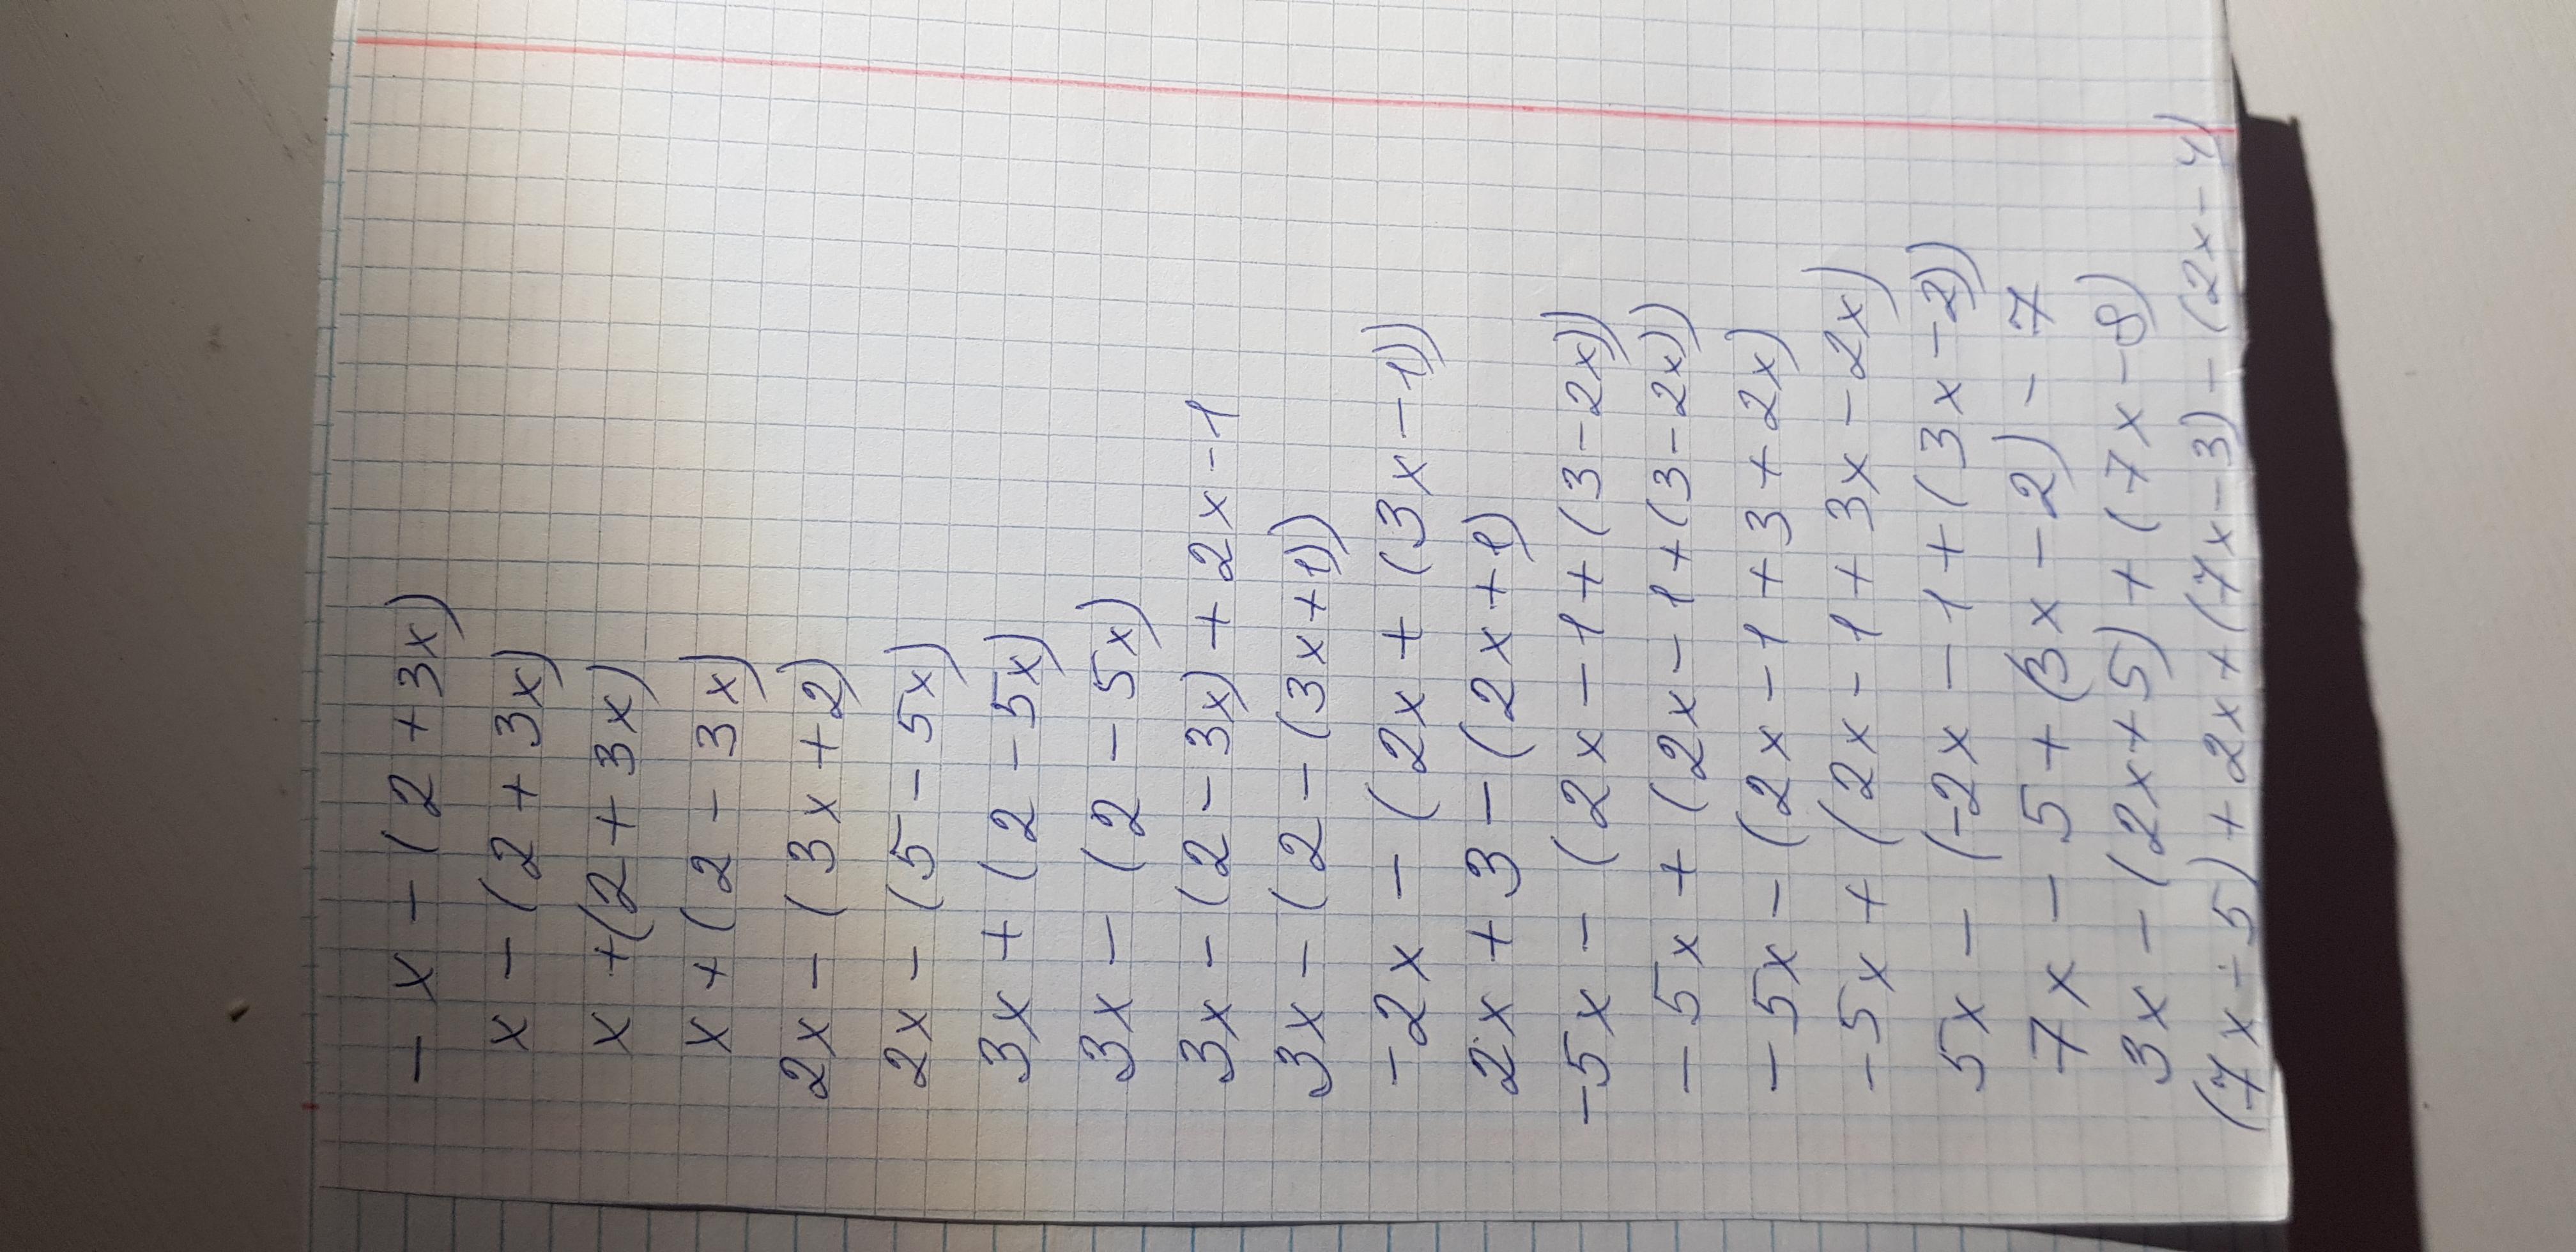 - x - (2 + 3x)
x - (2 + 3x)
x + (2 + 3x)
x + (2 - 3x)
2x - (3x + 2)
2x - (5 - 5x)
3x + (2 - 5x)
3x - (2 - 5x)
3x - (2 - 3x) + 2x - 1
3x - (2 - (3x + 1))
- 2x - (2x + (3x - 1))
2x + 3 - (2x + 1)
- 5x - (2x - 1 + (3 - 2x))
- 5x + (2x - 1 + (3 - 2x))
- 5x - (2x - 1 + 3 + 2x)
- 5x + (2x - 1 + 3x - 2x)
5x - (-2x - 1 + (3x - 2))
7x - 5 + (3x - 2) - 7
3x - (2x + 5) + (7x - 8)
(7x + 5) + 2x + (7x - 3) - (2x - 4)